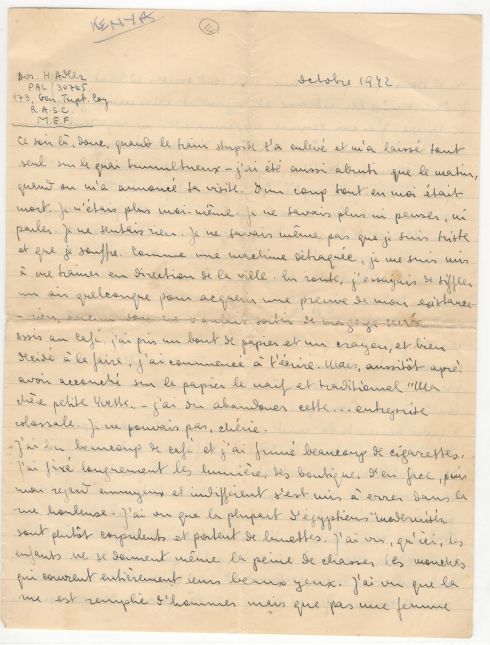 KENYA
14
Dvr. H. Adler
PAL/30765
179, Gen. Trpt. Coy.
R.A.S.C.
M.E.F.
Octobre 1942.
Ce soir là, donc, quand le train stupide t'a enlevé et m'a laissé tout
seul sur le quai tumultueux – j'ai été aussi abruti que le matin,
quand on m'a annoncé ta visite. D'un coup tout en moi était
mort. Je n'étais plus moi-même. Je ne savais plus ni penser, ni
parler. Je ne sentais rien. Je ne savais même pas que je suis triste
et que je souffre. Comme une machine détraquée, je me suis mis
à me trainer en direction de la ville. En route, j'essayais de siffler
un air quelconque pour acquérir une preuve de mon existance
– rien, aucun son ne voulait sortir de ma gorge
Assis au café, j'ai pris un bout de papier et un crayon, et bien
décidé à le faire, j'ai commencé à t'écrire. Mais, aussitôt après
avoir accouché sur le papier le naïf et traditionnel "Ma
chère petite Yvette" – j'ai dû abandoner cette... entreprise
colossale. Je ne pouvais pas, chérie.
J'ai bu beaucoup de café et j'ai fumé beaucoup de cigarettes.
J'ai fixé longuement les lumière, des boutique, d'en face, puis
mon regard ennuyeux et indifférent s'est mis à errer dans la
rue houleuse. J'ai vu que la plupart d'égyptiens "modernisés"
sont plutôt corpulents et portent de lunettes. J'ai vu, qu'ici, les
enfants ne se donnent même la peine de chasser les mouches
qui couvrent entièrement leurs beaux yeux. J'ai vu que la
rue est remplie d'hommes mais que pas une femme